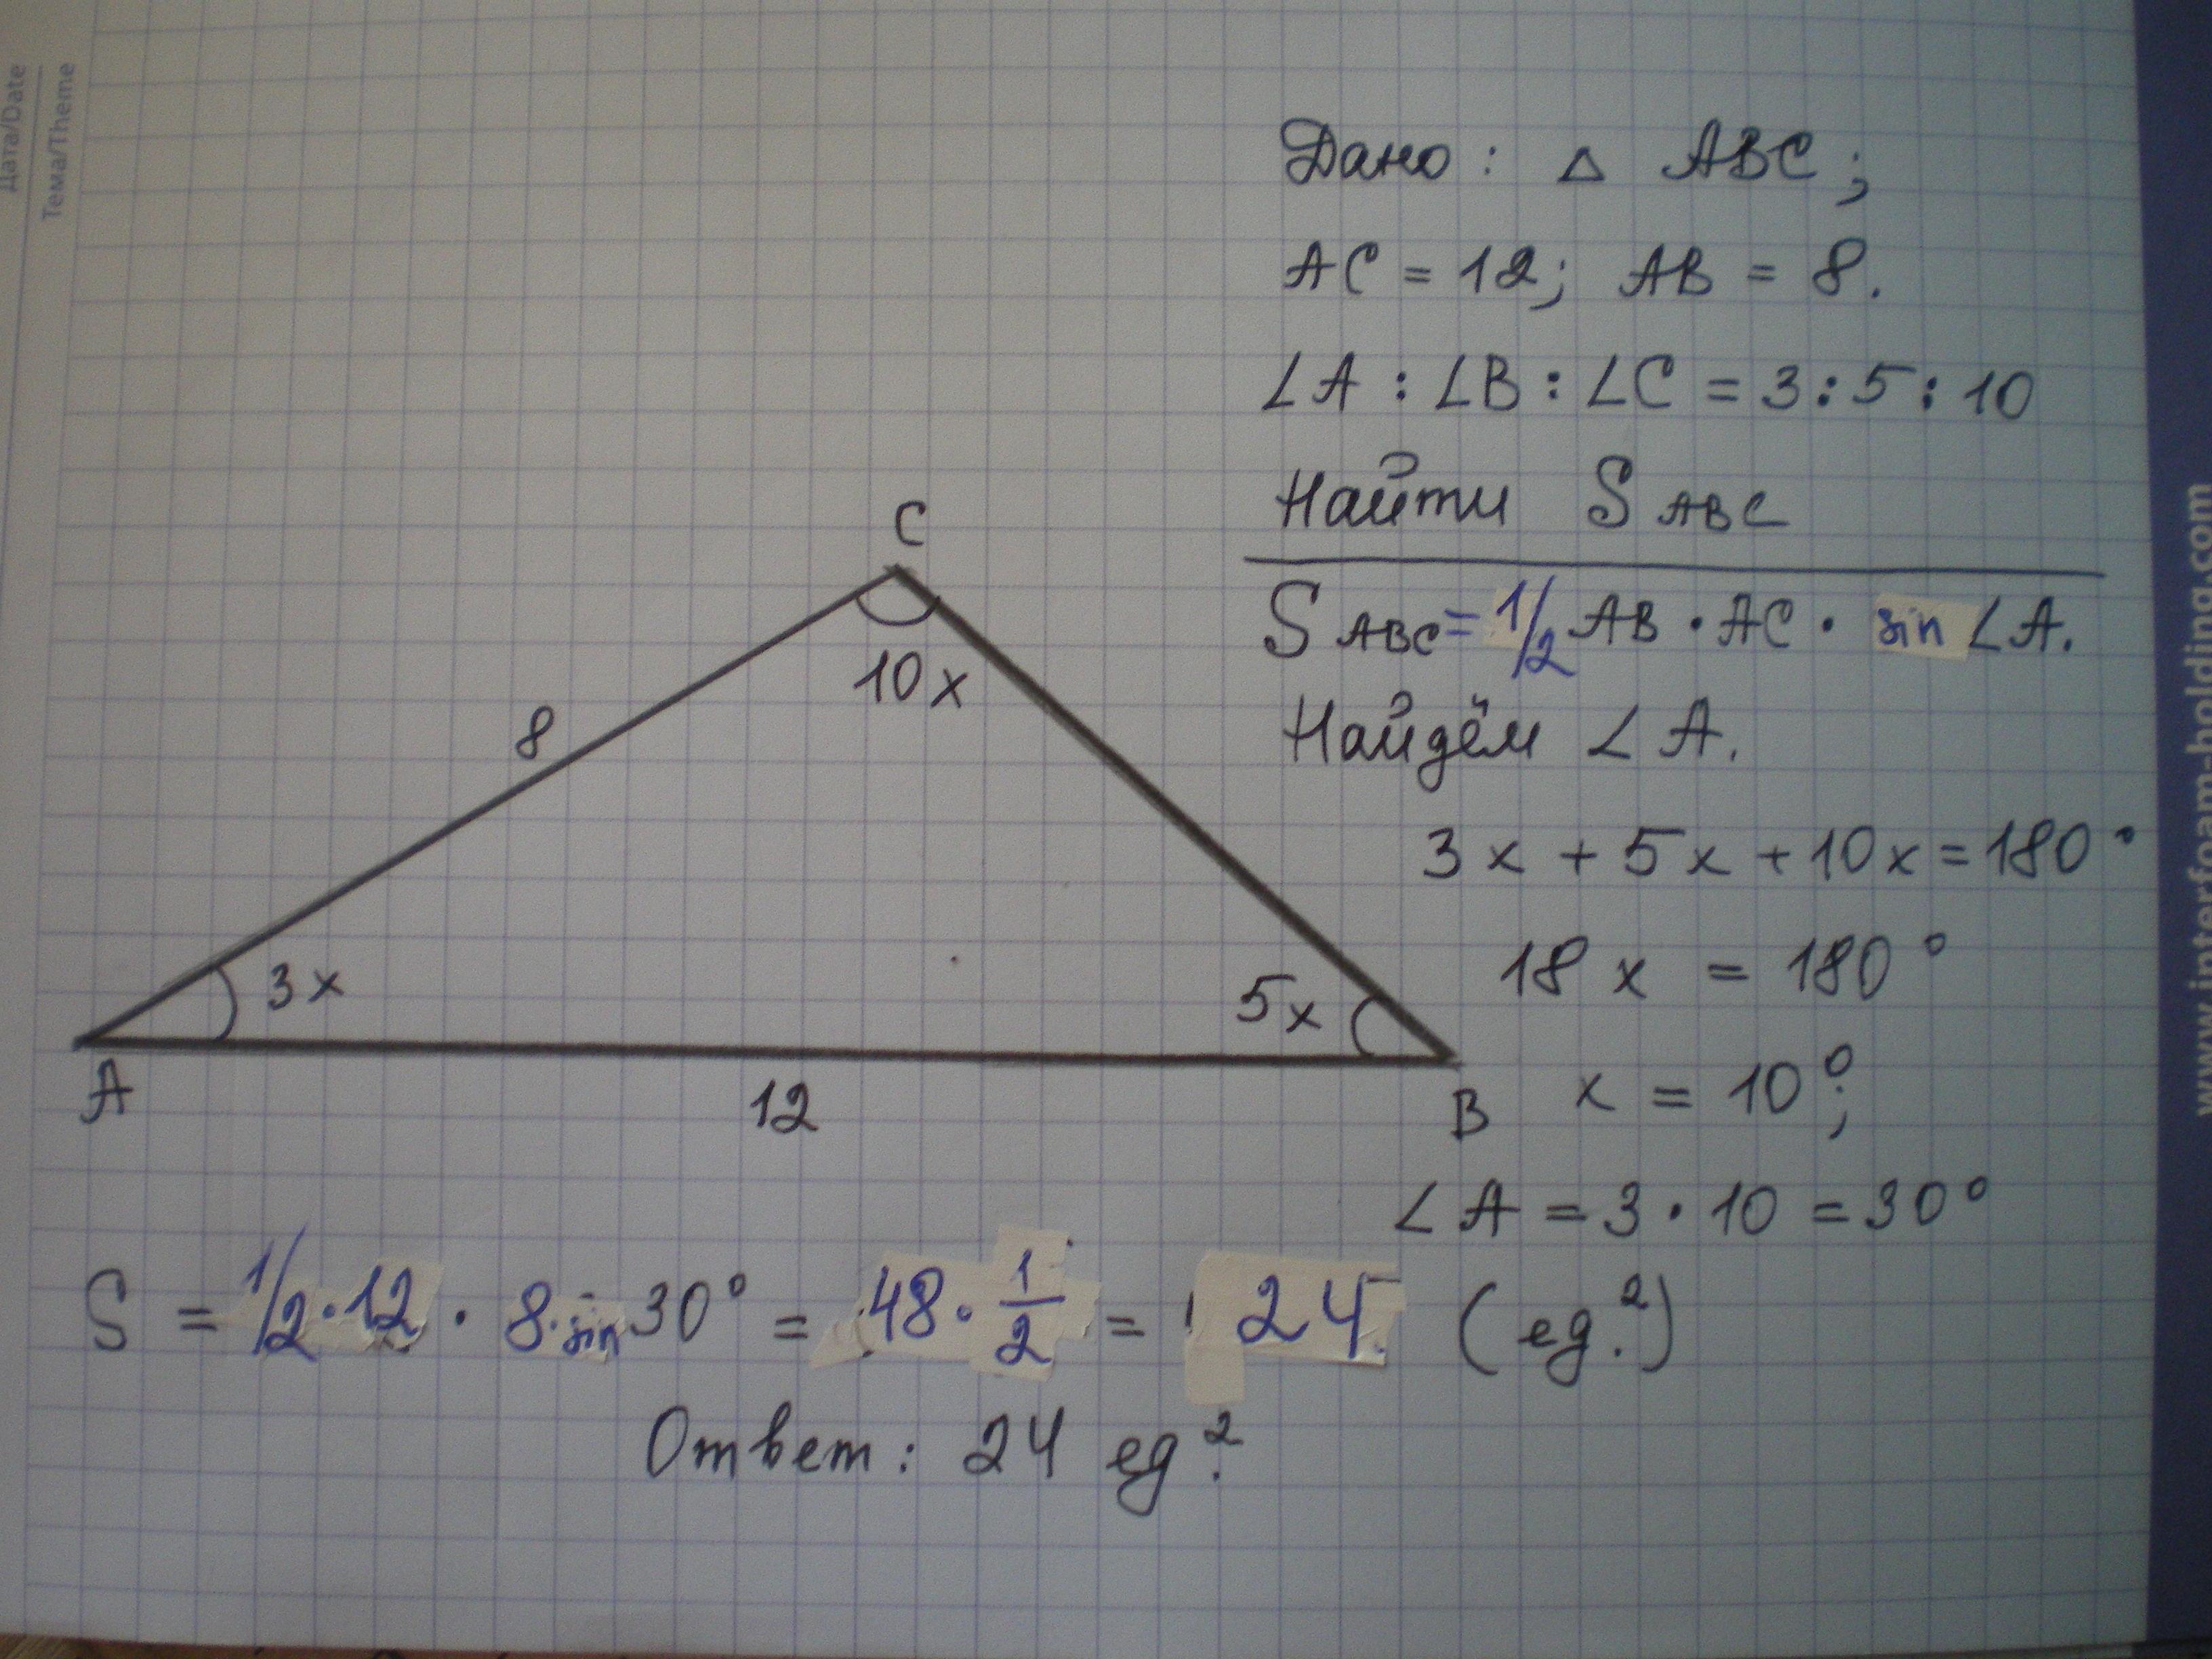 Дата/Date
Тема/Theme
Дано: △ ABC;
AC = 12; AB = 8.
∠A : ∠B : ∠C = 3 : 5 : 10
Найти S ABC
S ABC = 1/2 AB · AC · sin ∠A.
Найдём ∠A.
3x + 5x + 10x = 180°
18x = 180°
x = 10°;
∠A = 3 · 10 = 30°
C
10x
8
3x
5x
A
12
B
S = 1/2 · 12 · 8 · sin 30° = 48 · 1/2 = 24 (ед.²)
Ответ: 24 ед.²
www.interfoam-holding.com